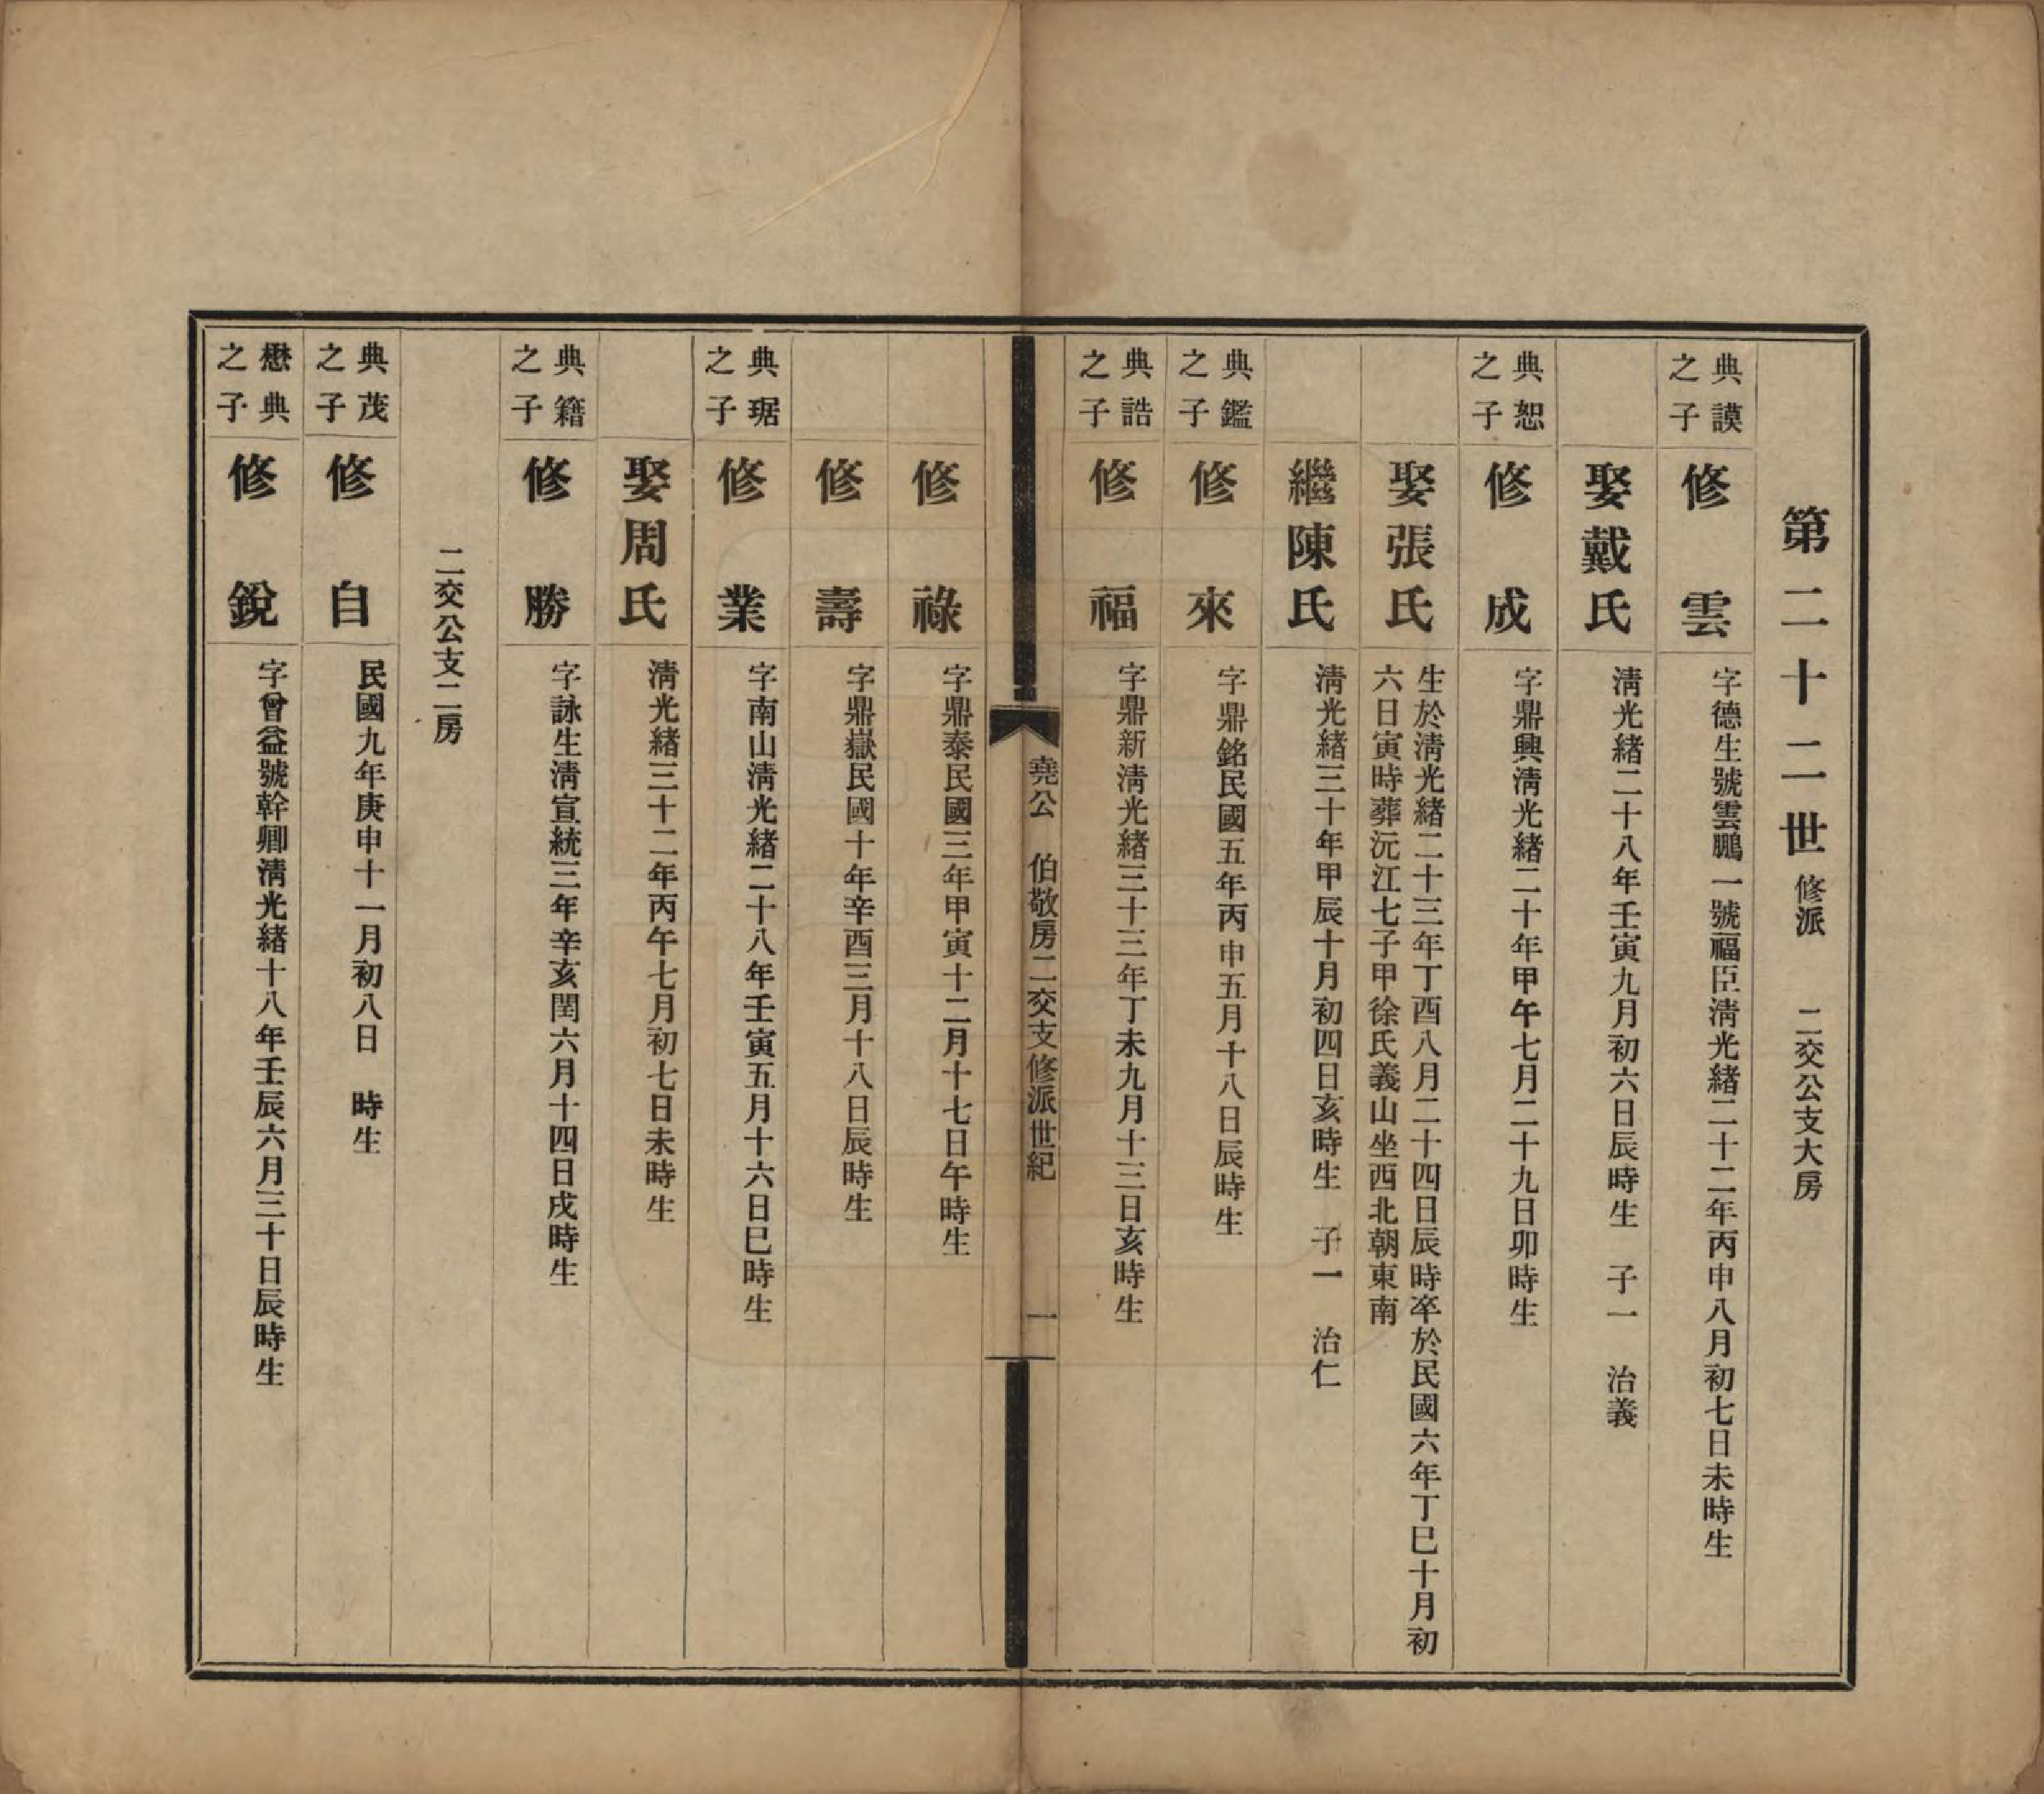 第二十二世修派 二交公支大房
典謨之子 修雲 字德生號雲鵬一號福臣淸光緒二十二年丙申八月初七日未時生
娶戴氏 淸光緒二十八年壬寅九月初六日辰時生 子一 治義
典恕之子 修成 字鼎興淸光緒二十年甲午七月二十九日卯時生
娶張氏 生於淸光緒二十三年丁酉八月二十四日辰時卒於民國六年丁巳十月初
六日寅時葬沅江七子甲徐氏義山坐西北朝東南
繼陳氏 淸光緒三十年甲辰十月初四日亥時生 子一 治仁
典鑑之子 修來 字鼎銘民國五年丙申五月十八日辰時生
典誥之子 修福 字鼎新淸光緒三十三年丁未九月十三日亥時生
堯公 伯敬房二交支修派世紀 一
修祿 字鼎泰民國三年甲寅十二月十七日午時生
修壽 字鼎嶽民國十年辛酉三月十八日辰時生
典琚之子 修業 字南山淸光緒二十八年壬寅五月十六日巳時生
娶周氏 淸光緒三十二年丙午七月初七日未時生
典籍之子 修勝 字詠生淸宣統三年辛亥閏六月十四日戌時生
二交公支二房
典茂之子 修自 民國九年庚申十一月初八日 時生
懋典之子 修銳 字曾益號幹卿淸光緒十八年壬辰六月三十日辰時生